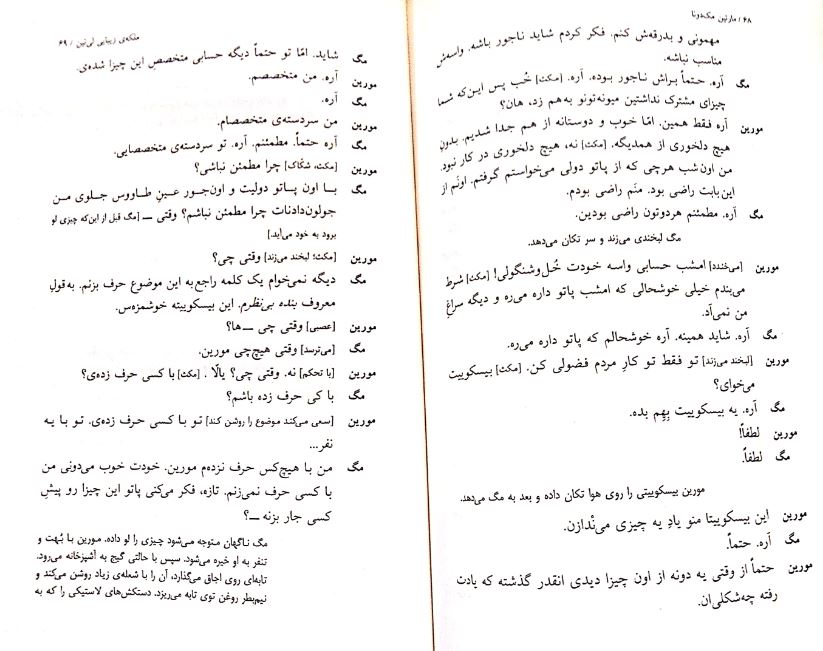 ۶۸ / مارتین مک‌دونا
مهمونی و بدرقه‌ش کنم. فکر کردم شاید ناجور باشه. واسه‌ش
مناسب نباشه.
مگ آره. حتماً براش ناجور بوده. آره. [مکث] خُب پس این‌که شما
چیزای مشترک نداشتین میونه‌تونو به‌هم زد، هان؟
مورین آره فقط همین. امّا خوب و دوستانه از هم جدا شدیم. بدونِ
هیچ دلخوری از همدیگه. [مکث] نه، هیچ دلخوری در کار نبود.
من اون‌شب هرچی که از پاتو دولی می‌خواستم گرفتم. اونَم از
این‌بابت راضی بود. منَم راضی بودم.
مگ آره. مطمئنم هردوتون راضی بودین.
مگ لبخندی می‌زند و سر تکان می‌دهد.
مورین [می‌خندد] امشب حسابی واسه خودت خُل‌وشنگولی! [مکث] شرط
می‌بندم خیلی خوشحالی که امشب پاتو داره می‌ره و دیگه سراغِ
من نمی‌آد.
مگ آره. شاید همینه. آره خوشحالم که پاتو داره می‌ره.
مورین [لبخند می‌زند] تو فقط تو کارِ مردم فضولی کن. [مکث] بیسکوییت
می‌خوای؟
مگ آره. یه بیسکوییت بِهِم بده.
مورین لطفاً!
مگ لطفاً.
مورین بیسکوییتی را روی هوا تکان داده و بعد به مگ می‌دهد.
مورین این بیسکوییتا منو یادِ یه چیزی می‌نْدازن.
مگ آره. حتماً.
مورین حتماً از وقتی یه دونه از اون چیزا دیدی انقدر گذشته که یادت
رفته چه‌شکلی‌ان.
ملکه‌ی زیبایی لی‌نین / ۶۹
مگ شاید. امّا تو حتماً دیگه حسابی متخصصِ این چیزا شده‌ی.
مورین آره. من متخصصم.
مگ آره.
مورین من سردسته‌ی متخصصام.
مگ آره حتماً. مطمئنم. آره. تو سردسته‌ی متخصصایی.
مورین [مکث، شکّاک] چرا مطمئن نباشی؟
مگ با اون پاتو دولیت و اون‌جور عینِ طاووس جلوی من
جولون‌دادنات چرا مطمئن نباشم؟ وقتی ــ [مگ قبل از این‌که چیزی لو
برود به خود می‌آید.]
مورین [مکث؛ لبخند می‌زند] وقتی چی؟
مگ دیگه نمی‌خوام یک کلمه راجع‌به این موضوع حرف بزنم. به‌قولِ
معروف بنده بی‌نظرم. این بیسکوییته خوشمزه‌س.
مورین [عصبی] وقتی چی ــ‌ها؟
مگ [می‌ترسد] وقتی هیچ‌چی مورین.
مورین [با تحکم] نه. وقتی چی؟ یالّا . [مکث] با کسی حرف زده‌ی؟
مگ با کی حرف زده باشم؟
مورین [سعی می‌کند موضوع را روشن کند] تو با کسی حرف زده‌ی. تو با یه
نفر...
مگ من با هیچ‌کس حرف نزده‌م مورین. خودت خوب می‌دونی من
با کسی حرف نمی‌زنم. تازه، فکر می‌کنی پاتو این چیزا رو پیشِ
کسی جار بزنه ــ؟
مگ ناگهان متوجه می‌شود چیزی را لو داده. مورین با بُهت و
تنفر به او خیره می‌شود. سپس با حالتی گیج به آشپزخانه می‌رود.
تابه‌ای روی اجاق می‌گذارد، آن را با شعله‌ی زیاد روشن می‌کند و
نیم‌بطر روغن توی تابه می‌ریزد. دستکش‌های لاستیکی را که به